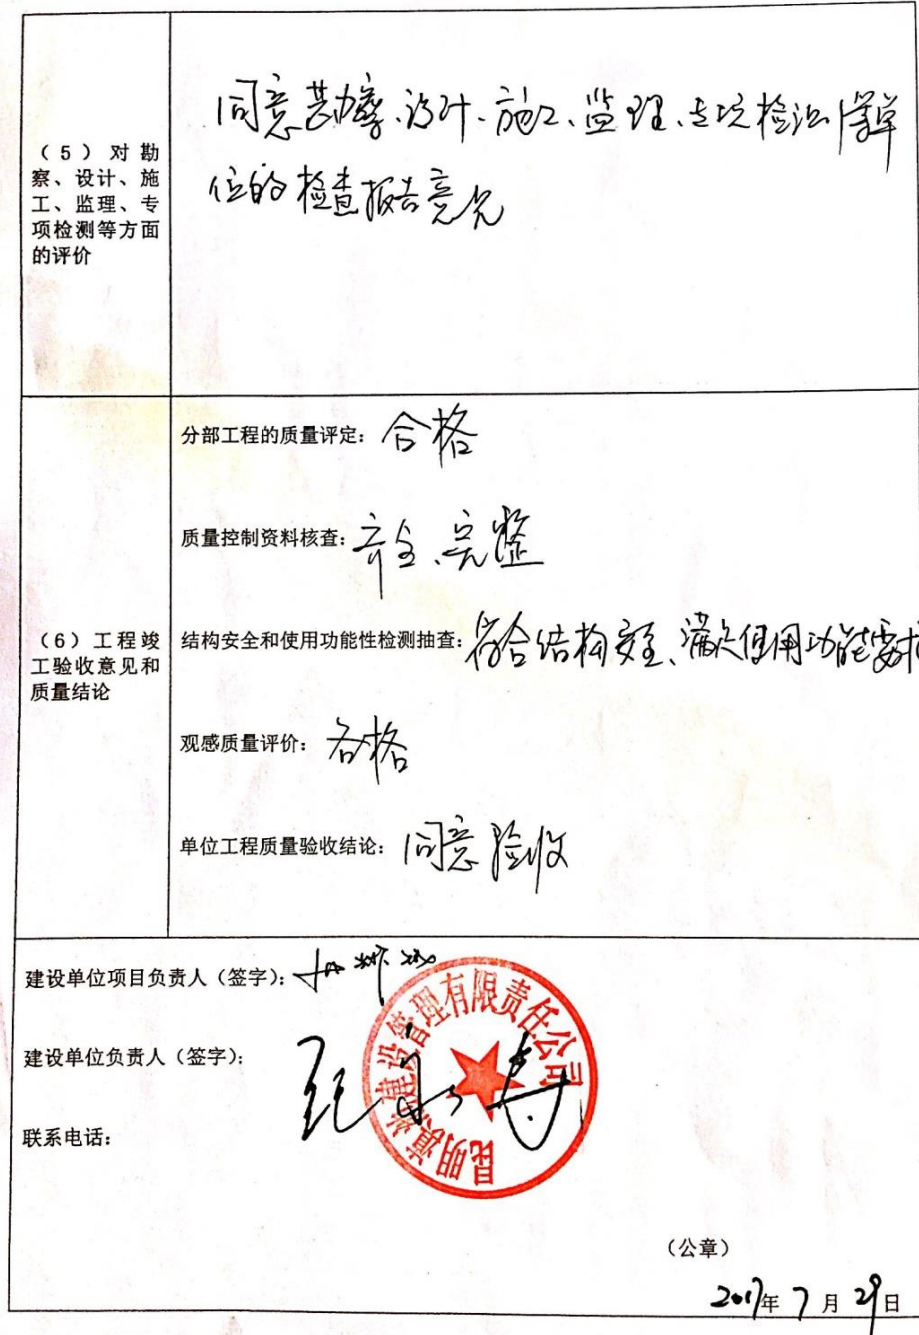 (5)对勘
察、设计、施
工、监理、专
项检测等方面
的评价
同意勘察、设计、施工、监理、专项检测等单
位的检查报告意见
(6)工程竣
工验收意见和
质量结论
分部工程的质量评定:合格
质量控制资料核查:齐全、完整
结构安全和使用功能性检测抽查:符合结构安全、满足使用功能要求
观感质量评价:合格
单位工程质量验收结论:同意验收
建设单位项目负责人(签字):
建设单位负责人(签字):
联系电话:
建设管理有限责任公司
(公章)
2017年7月29日